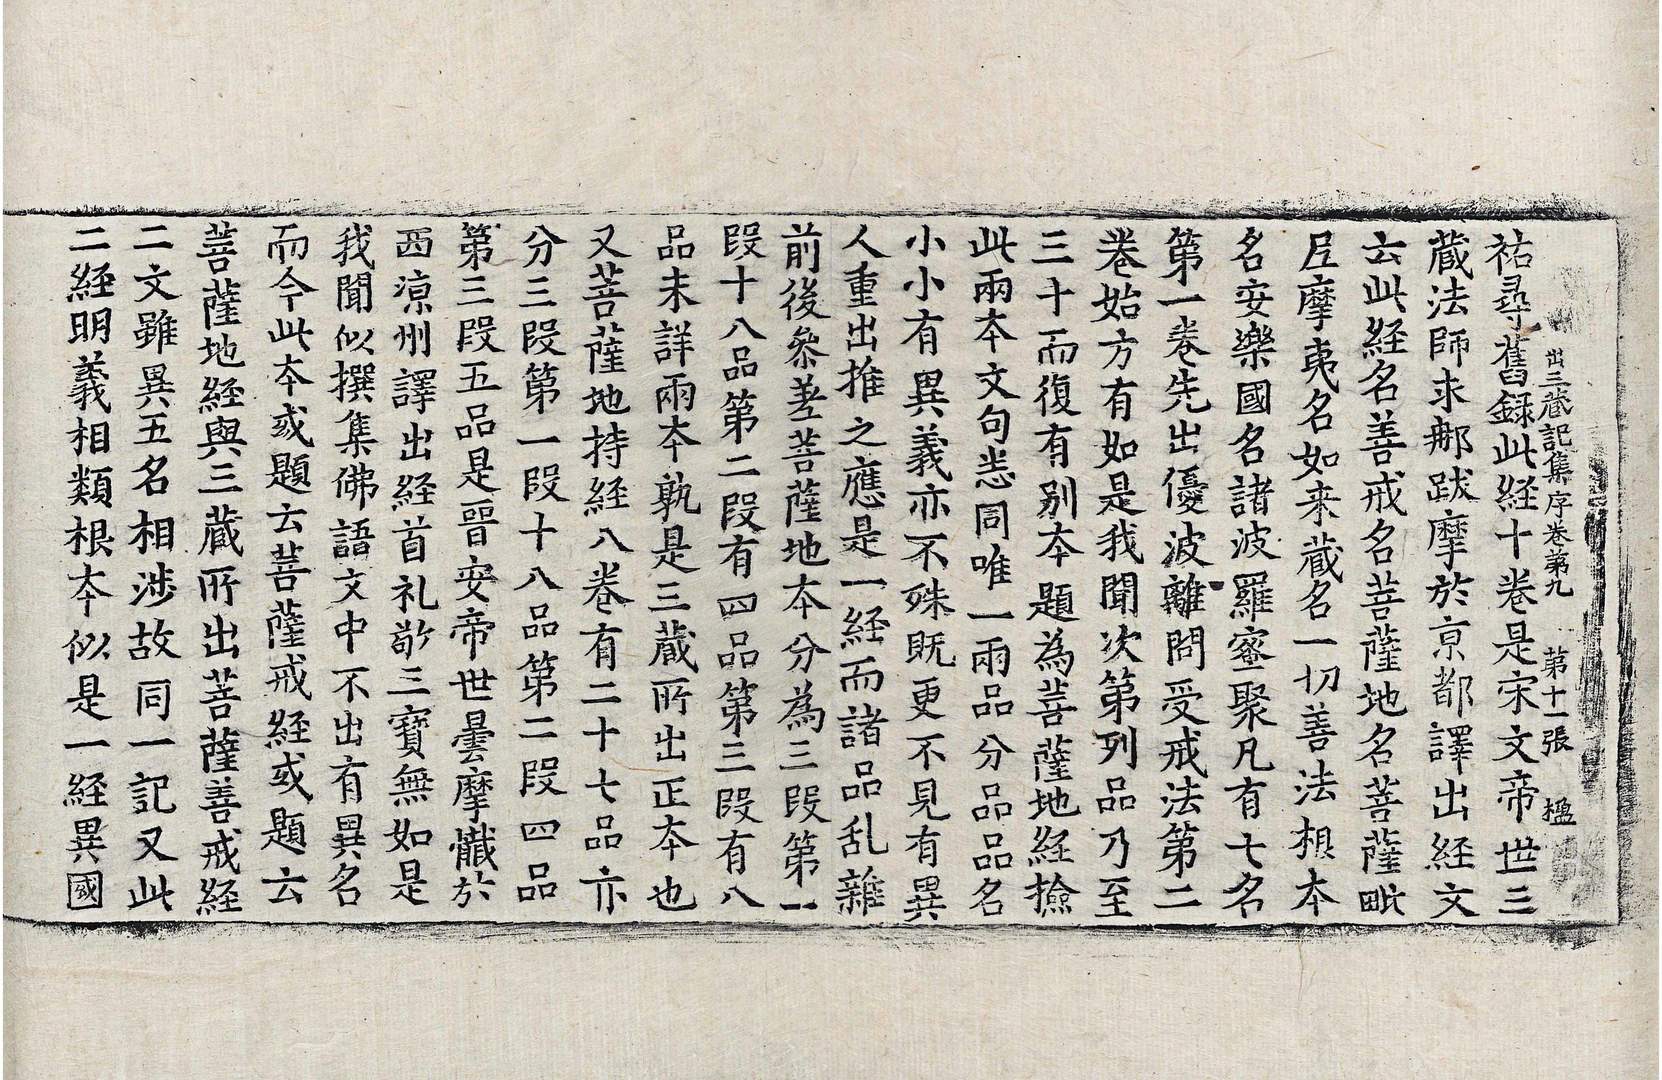 出三藏記集序卷第九 第十一張 楹
祐尋舊録此経十卷是宋文帝世三
藏法師求郍跋摩於京都譯出経文
云此経名善戒名菩薩地名菩薩毗
尼摩夷名如来藏名一切善法根本
名安樂國名諸波羅蜜聚凡有七名
第一卷先出優波離問受戒法第二
卷始方有如是我聞次第列品乃至
三十而復有别本題為菩薩地経撿
此兩本文句悉同唯一兩品分品品名
小小有異義亦不殊既更不見有異
人重出推之應是一経而諸品乱雜
前後叅差菩薩地本分為三段第一
段十八品第二段有四品第三段有八
品未詳兩本孰是三藏所出正本也
又菩薩地持経八卷有二十七品亦
分三段第一段十八品第二段四品
第三段五品是晉安帝世曇摩懺於
西涼州譯出経首礼敬三寶無如是
我聞似撰集佛語文中不出有異名
而今此本或題云菩薩戒経或題云
菩薩地経與三藏所出菩薩善戒経
二文雖異五名相渉故同一記又此
二経明義相類根本似是一経異國